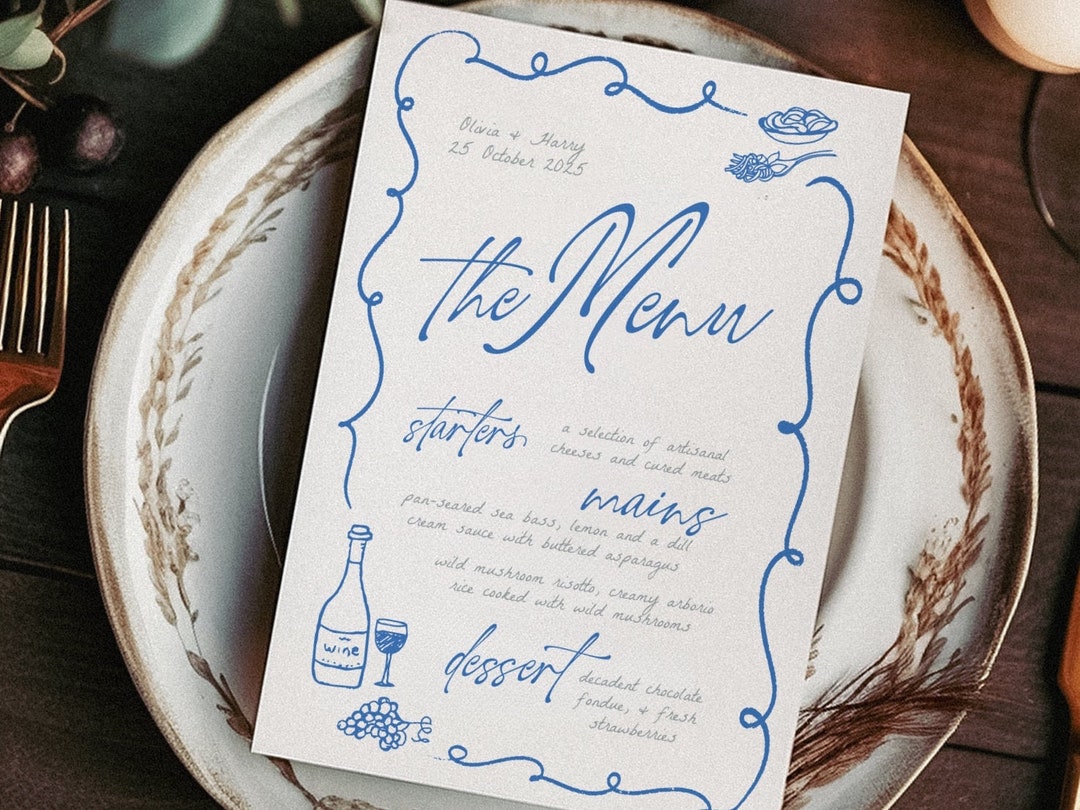 Olivia & Harry
25 October 2025
the Menu
starters
a selection of artisanal
cheeses and cured meats
mains
pan-seared sea bass, lemon and a dill
cream sauce with buttered asparagus
wild mushroom risotto, creamy arborio
rice cooked with wild mushrooms
wine
dessert
decadent chocolate
fondue, & fresh
strawberries